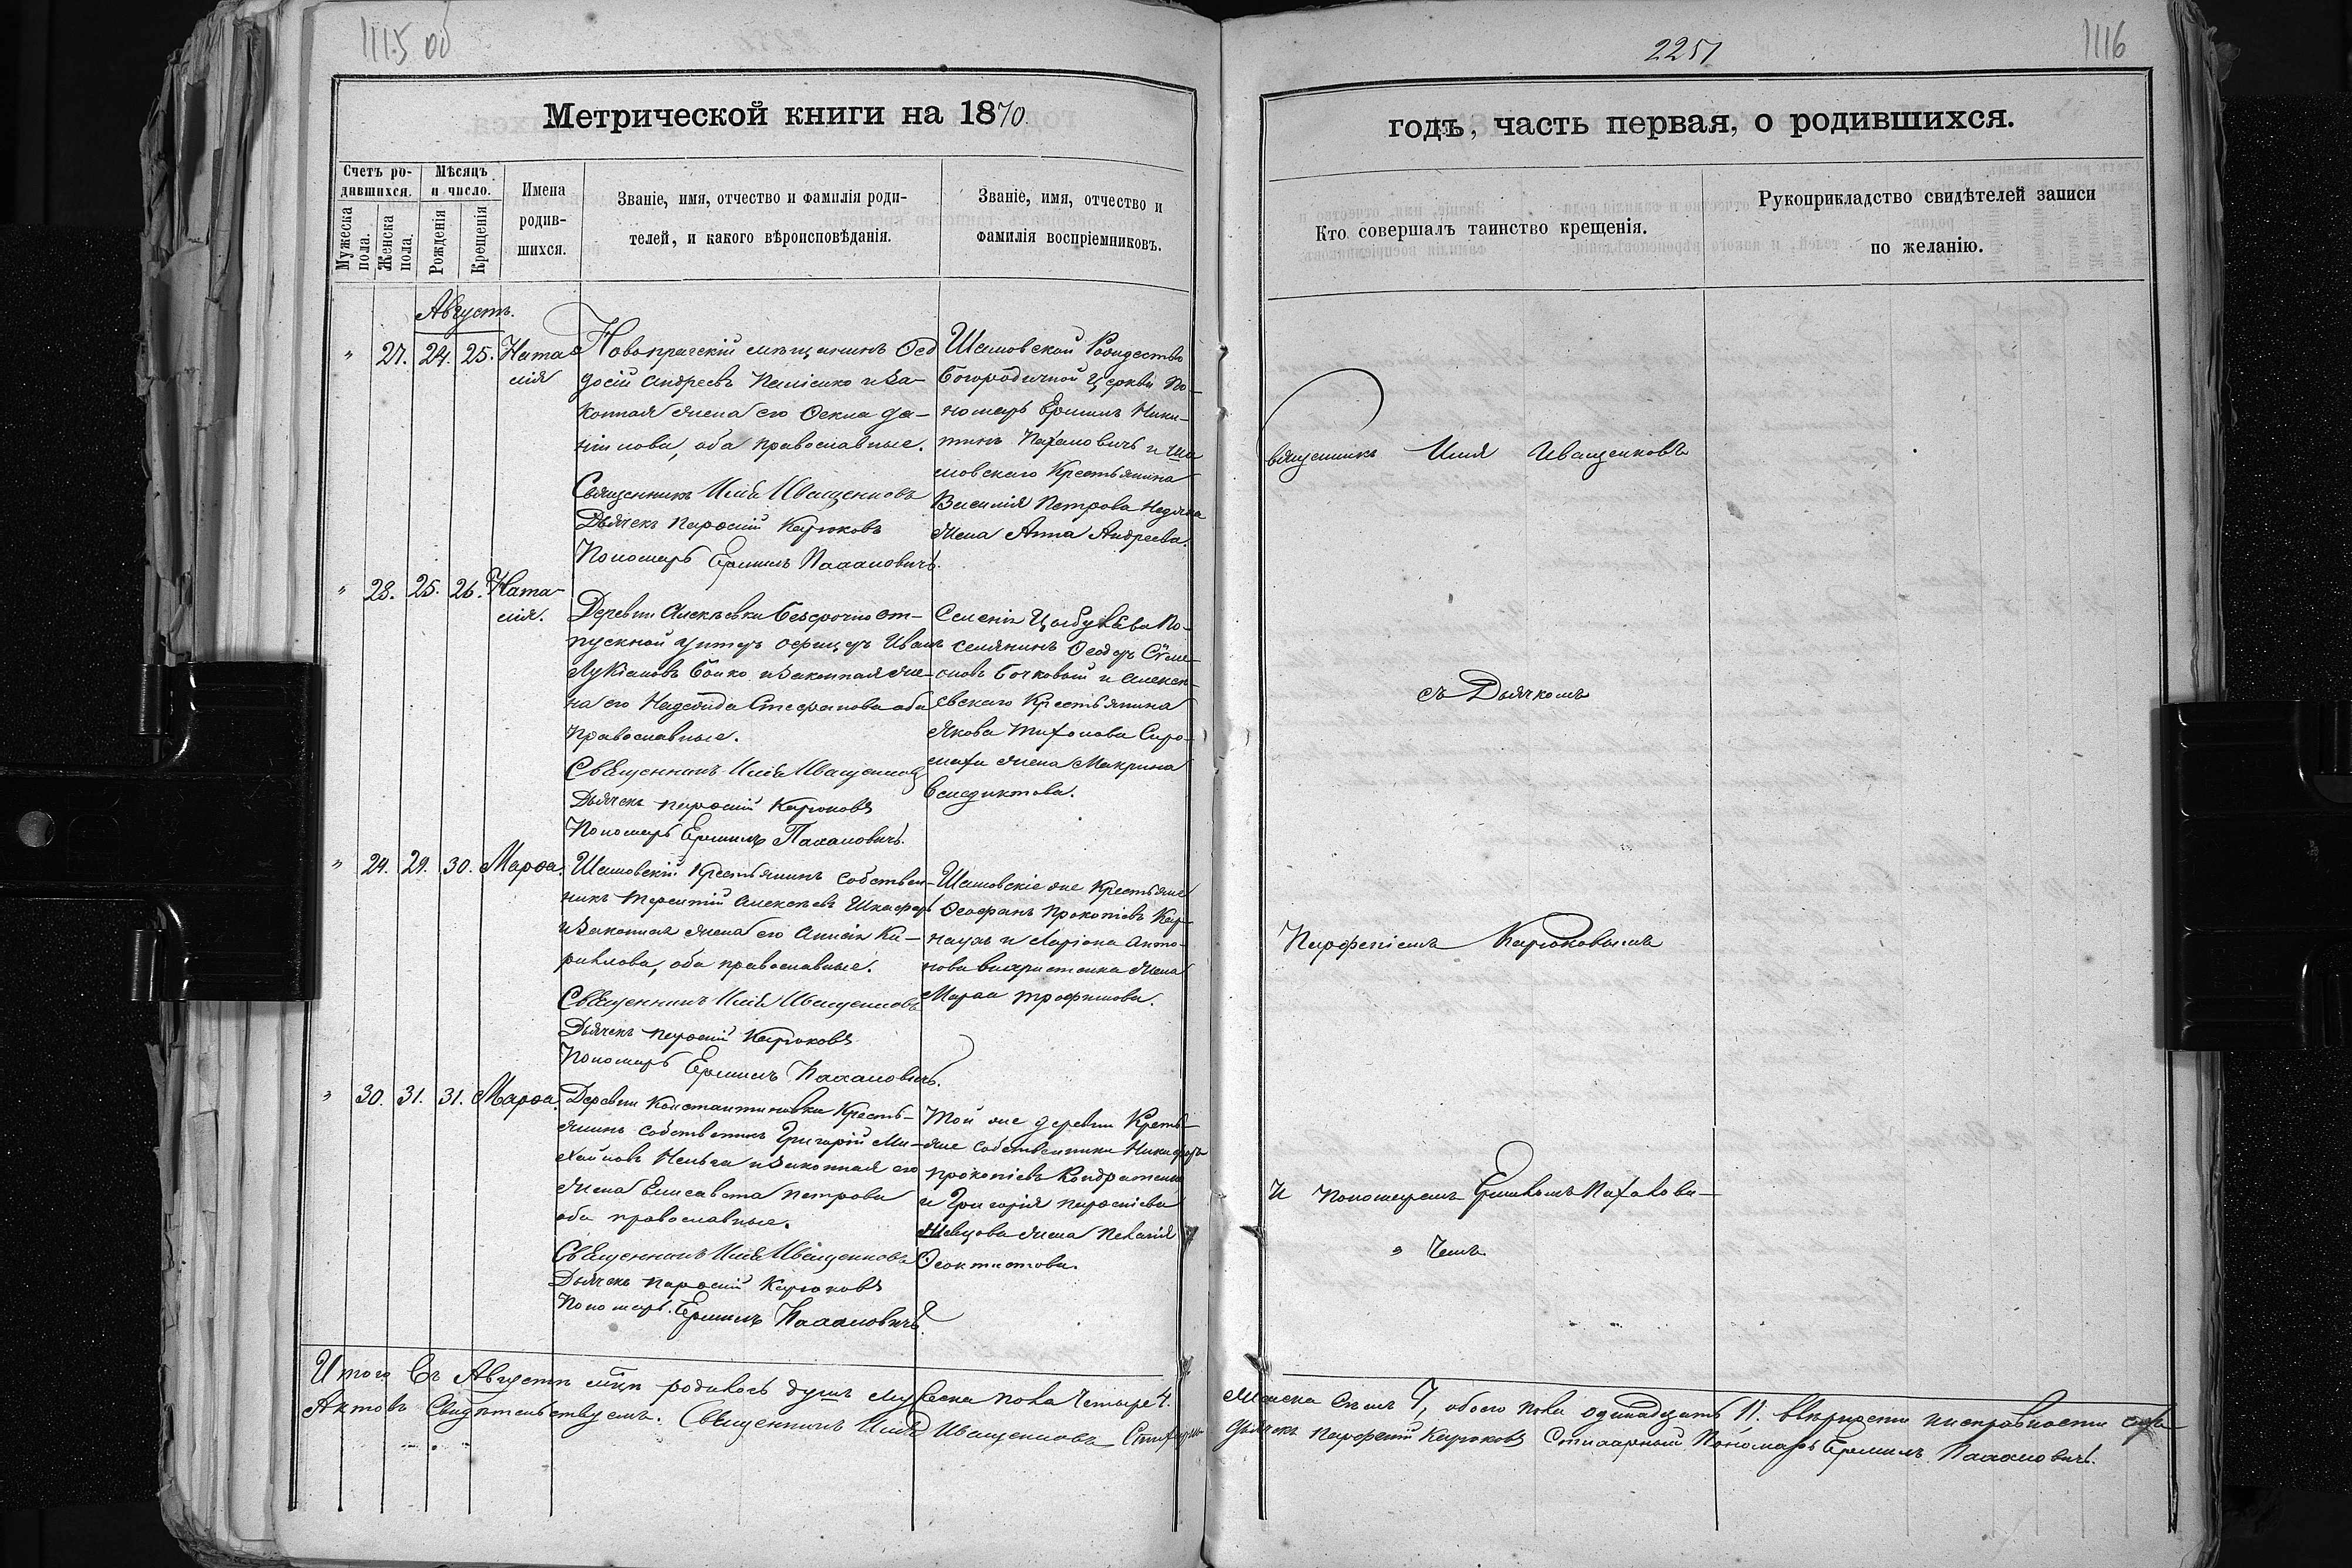 1115 об
2251
1116
Метрической книги на 1870.
годъ, часть первая, о родившихся.
Счетъ ро-
дившихся.
Мужеска
пола.
Женска
пола.
Мѣсяцъ
и число.
Рожденія
Крещенія
Имена
родив-
шихся.
Званіе, имя, отчество и фамилія роди-
телей, и какого вѣроисповѣданія.
Званіе, имя, отчество и
фамилія воспріемниковъ.
Кто совершалъ таинство крещенія.
Рукоприкладство свидѣтелей записи
по желанію.
Августъ.
" 27. 24. 25. Ната-
лія
Новопражскій мѣщанинъ Ѳео
досій Андреевъ и за-
конная жена его Ѳекла Да-
ніилова, оба православные.
Священникъ Илія Иващенковъ
Дьячекъ Парѳеній Карюковъ
Пономарь Ермилъ Пахаловичъ.
Шамовской Рождество
Богородичной Церкви По-
номарь Ермилъ Ники-
тинъ Пахаловичъ и Ша
мовскаго Крестьянина
Василія Петрова
жена Анна Андреева.
" 28. 25. 26. Ната-
лія.
Деревни Алексѣевки безсрочно от-
пускной унтеръ офицеръ Иванъ
Лукіановъ Бойко и законная же-
на его Надежда Стефанова оба
православные.
Священникъ Илія Иващенковъ
Дьячекъ Парѳеній Карюковъ
Пономарь Ермилъ Пахаловичъ.
Селенія Цыбулева По-
селянинъ Ѳеодоръ Семе-
оновъ Бочковый и Алексѣ-
евскаго Крестьянина
Якова Тихонова Сиро-
махи жена Макрина
Бенедиктова.
" 29. 29. 30. Марѳа.
Шамовскій Крестьянинъ собствен-
никъ Терентій Алексѣевъ
и законная жена его Анисія Ки-
рилова, оба православные.
Священникъ Илія Иващенковъ
Дьячекъ Парѳеній Карюковъ
Пономарь Ермилъ Пахаловичъ.
Шамовскіе же Крестьяне
Ѳеофанъ Прокопіевъ Кар-
наухъ и Ларіона Анто-
нова жена
Марѳа Трофимова.
" 30. 31. 31. Марѳа.
Деревни Константиновки Кресть-
янинъ собственникъ Григорій Ми-
хайловъ и законная его
жена Елисавета Петрова
оба православные.
Священникъ Илія Иващенковъ
Дьячекъ Парѳеній Карюковъ
Пономарь Ермилъ Пахаловичъ.
Той же деревни Кресть-
яне собственники Никифоръ
Прокопіевъ Кондратенко
и Григорія Парѳеніева
Швецова жена Пелагія
Ѳеоктистова.
Священникъ Илія Иващенковъ
съ Дьячкомъ
Парфеніемъ Карюковымъ
и Пономаремъ Ермиломъ Пахалови-
" чемъ
Итого въ Августѣ мцѣ родилось душъ мужеска пола четыре 4.
Женска семь 7, обоего пола одинадцать 11. вѣрности и исправности сихъ
Актовъ Свидѣтельствуемъ. Священникъ Илія Иващенковъ Стихарн-
Дьячекъ Парфеній Карюковъ Стихарный Пономарь Ермилъ Пахаловичъ.